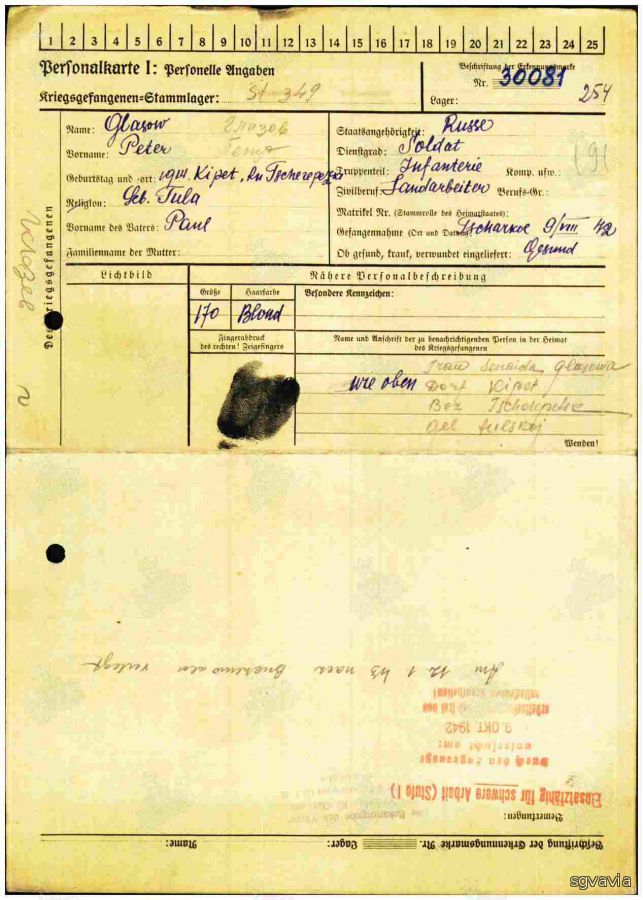 1 2 3 4 5 6 7 8 9 10 11 12 13 14 15 16 17 18 19 20 21 22 23 24 25
Personalkarte I: Personelle Angaben
Kriegsgefangenen-Stammlager: St 349
Beschriftung der Erkennungsmarke
Nr. 30081
Lager: 254
Des Kriegsgefangenen
Name: Glasow Глазов
Vorname: Peter Петр
Geburtstag und -ort: Kipet,
Religion: Geb. Tula
Vorname des Vaters: Paul
Familienname der Mutter:
Staatsangehörigkeit: Russe
Dienstgrad: Soldat
Truppenteil: Infanterie Komp. usw.:
Zivilberuf: Landarbeiter Berufs-Gr.:
Matrikel Nr. (Stammrolle des Heimatstaates):
Gefangennahme (Ort und Datum): 9/VIII 42
Ob gesund, krank, verwundet eingeliefert: Gesund
Lichtbild
Nähere Personalbeschreibung
Größe
Haarfarbe
Besondere Kennzeichen:
170
Blond
Fingerabdruck
des rechten! Zeigefingers
Name und Anschrift der zu benachrichtigenden Person in der Heimat
des Kriegsgefangenen
Frau Glasowa
wie oben Dorf Kipet
Bez
Wenden!
Beschriftung der Erkennungsmarke Nr. Lager: Name:
Bemerkungen:
Einsatzfähig für schwere Arbeit (Stufe I)
9. OKT. 1942
Am 12 1 43 nach verlegt
sgvavia